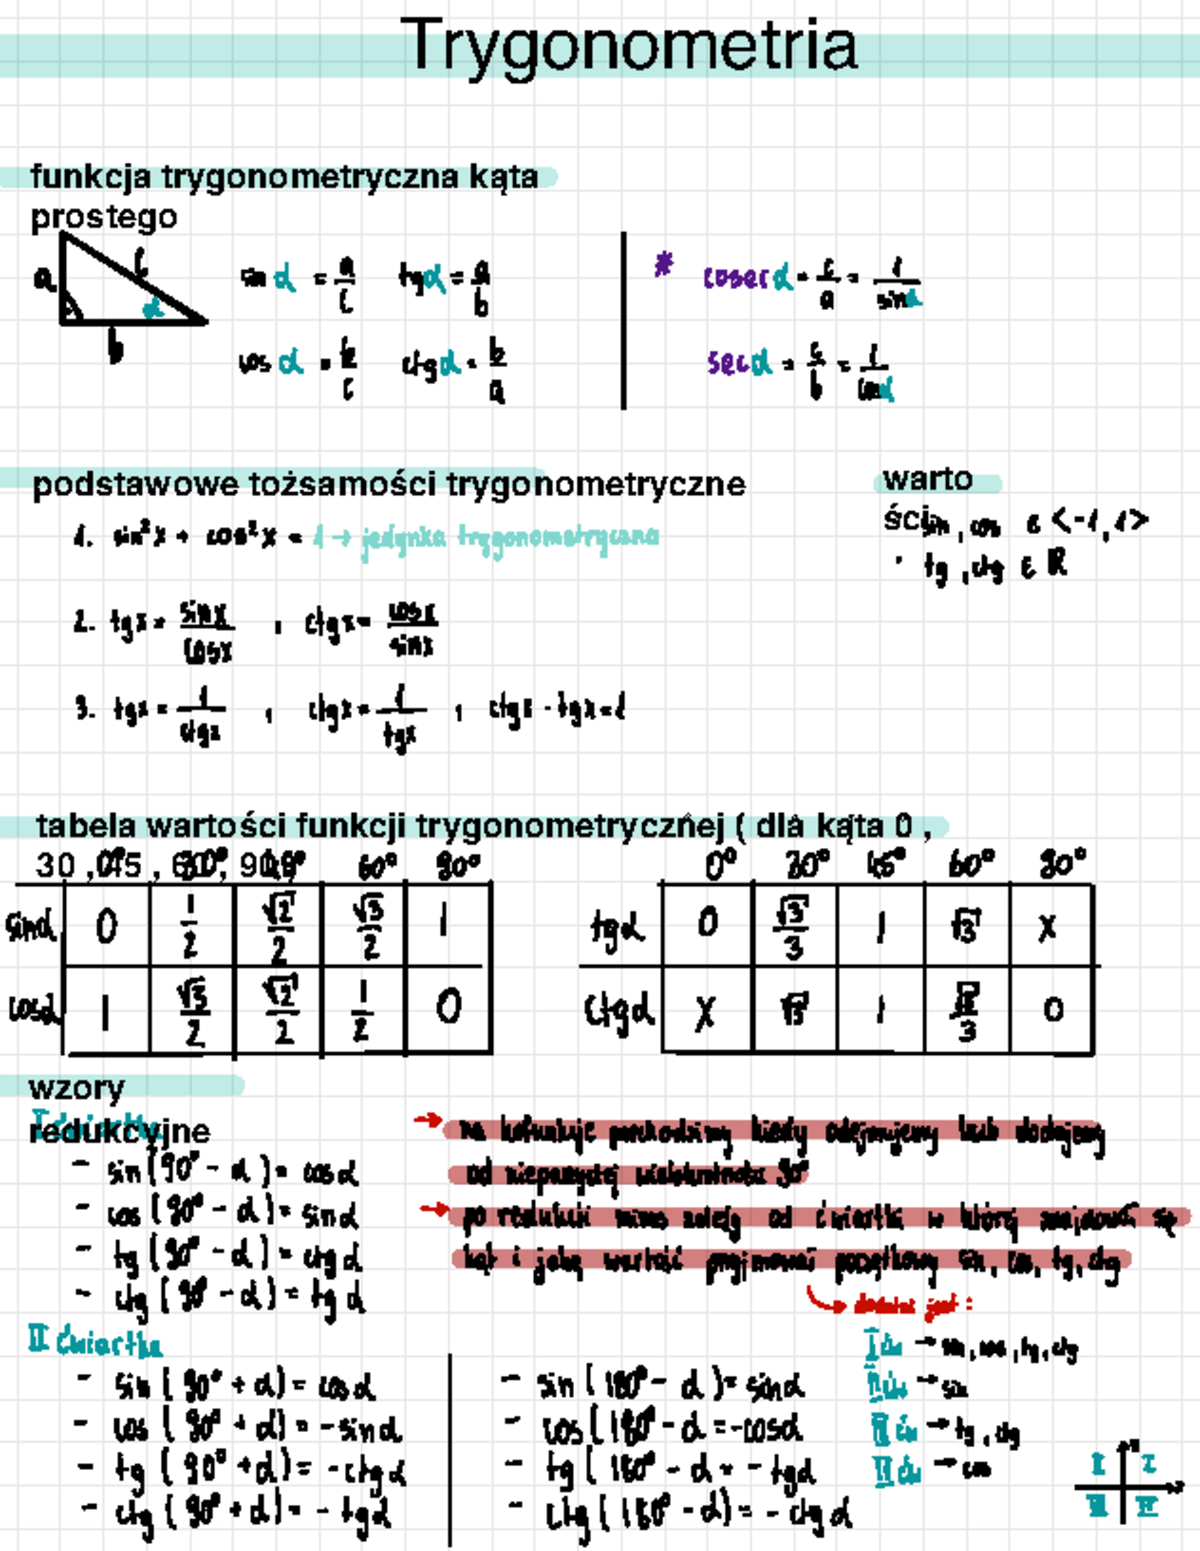 Trygonometria
funkcja trygonometryczna kąta
prostego
a c α b
sin α = a/c tg α = a/b
cos α = b/c ctg α = b/a
* cosec α = c/a = 1/sin α
sec α = c/b = 1/cos α
podstawowe tożsamości trygonometryczne
1. sin²x + cos²x = 1 → jedynka trygonometryczna
2. tgx = sinx/cosx , ctgx = cosx/sinx
3. tgx = 1/ctgx , ctgx = 1/tgx , ctgx · tgx = 1
warto
ści
sin , cos ∈ <-1, 1>
· tg , ctg ∈ R
tabela wartości funkcji trygonometrycznej ( dla kąta 0 ,
30 , 45 , 60 , 90 )
0° 30° 45° 60° 90°
sin α 0 1/2 √2/2 √3/2 1
cos α 1 √3/2 √2/2 1/2 0
0° 30° 45° 60° 90°
tg α 0 √3/3 1 √3 x
ctg α x √3 1 √3/3 0
wzory
redukcyjne
I ćwiartka
- sin (90° - α) = cos α
- cos (90° - α) = sin α
- tg (90° - α) = ctg α
- ctg (90° - α) = tg α
→ na kofunkcje przechodzimy kiedy odejmujemy lub dodajemy
od nieparzystej wielokrotności 90°
→ po redukcji minus zależy od ćwiartki w której znajdował się
kąt i jaką wartość przyjmował początkowy sin, cos, tg, ctg
dodatni jest :
I ćw → sin, cos, tg, ctg
II ćw → sin
III ćw → tg, ctg
IV ćw → cos
II ćwiartka
- sin ( 90° + α) = cos α
- cos ( 90° + α) = - sin α
- tg ( 90° + α) = - ctg α
- ctg ( 90° + α) = - tg α
- sin ( 180° - α ) = sin α
- cos ( 180° - α = - cos α
- tg ( 180° - α = - tg α
- ctg ( 180° - α) = - ctg α
II I
III IV